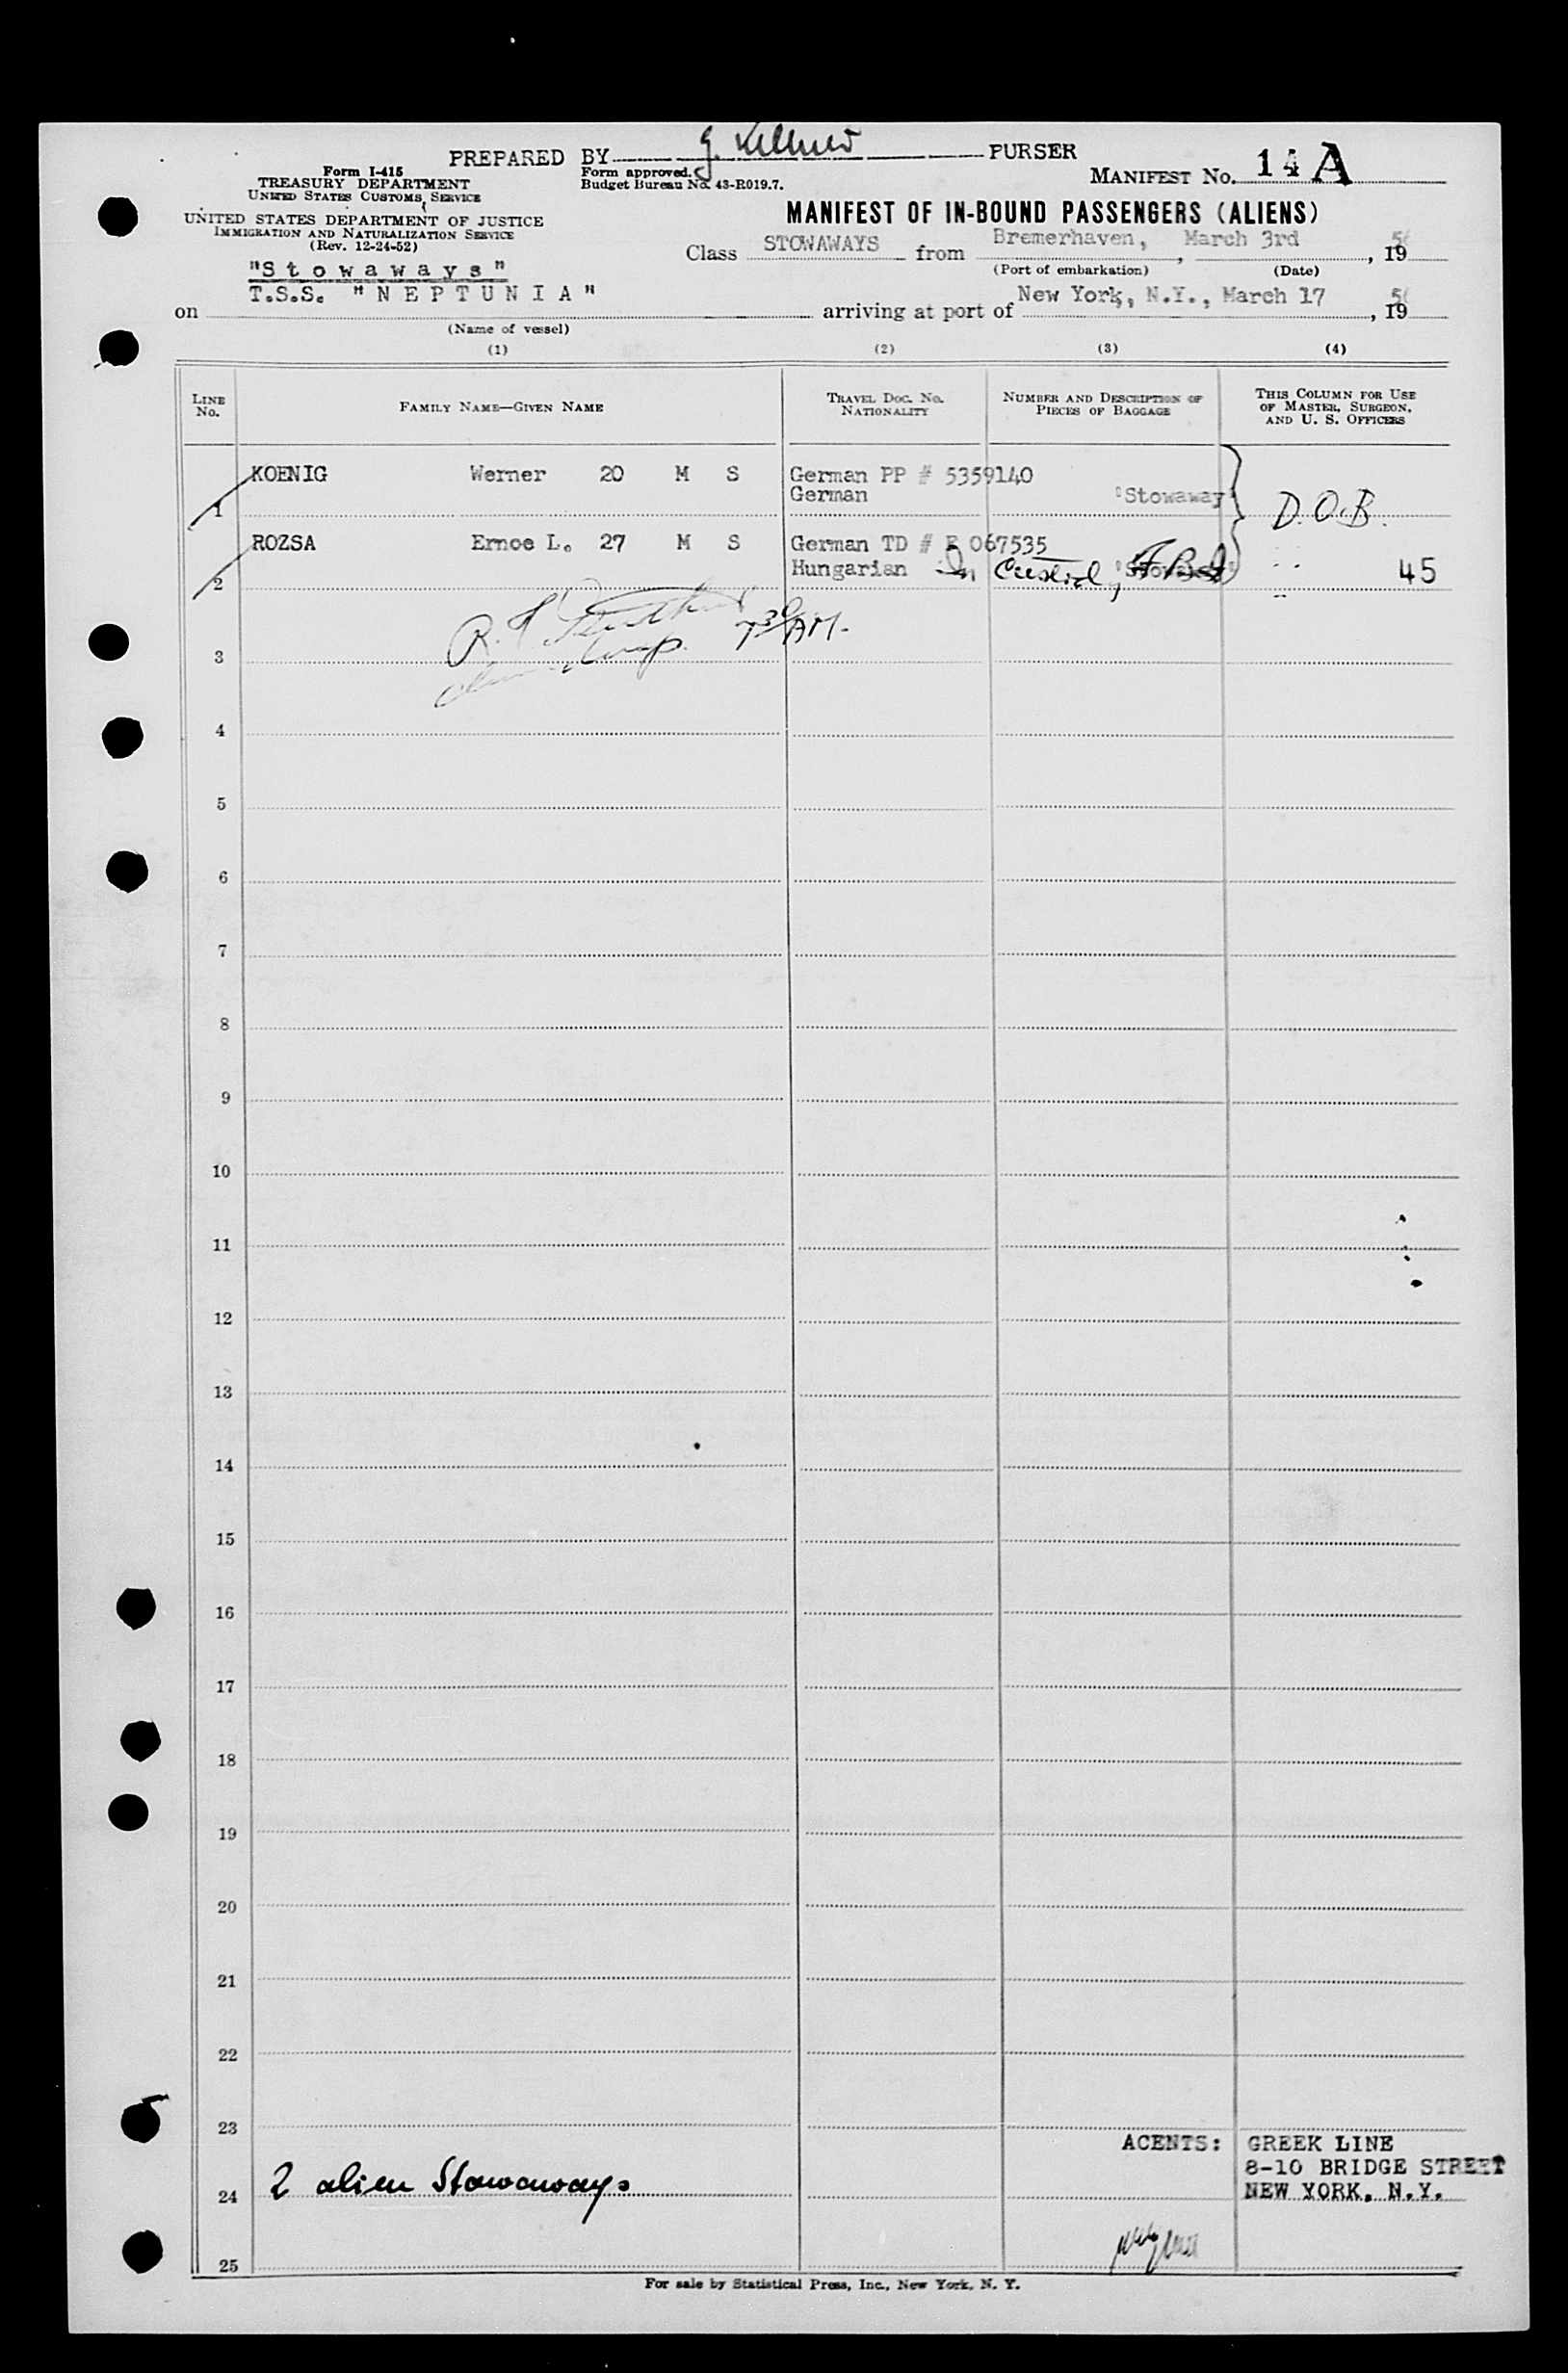 PREPARED BY PURSER
Form I-415
TREASURY DEPARTMENT
UNITED STATES CUSTOMS SERVICE
UNITED STATES DEPARTMENT OF JUSTICE
IMMIGRATION AND NATURALIZATION SERVICE
(Rev. 12-24-52)
Form approved.
Budget Bureau No. 43-R019.7.
MANIFEST No. 14 A
MANIFEST OF IN-BOUND PASSENGERS (ALIENS)
Class STOWAWAYS from Bremerhaven, March 3rd, 19
(Port of embarkation) (Date)
"Stowaways"
on T.S.S. "NEPTUNIA" arriving at port of New York, N.Y., March 17, 19
(Name of vessel)
(1) (2) (3) (4)
LINE No.
FAMILY NAME—GIVEN NAME
TRAVEL DOC. NO. NATIONALITY
NUMBER AND DESCRIPTION OF PIECES OF BAGGAGE
THIS COLUMN FOR USE OF MASTER, SURGEON, AND U. S. OFFICERS
KOENIG Werner 20 M S German PP # 5359140
1 German "Stowaway" D.O.B.
ROZSA Ernoe L. 27 M S German TD # E 067535
2 Hungarian In Custody "Stowaway" 45
7 30 AM.
3
4
5
6
7
8
9
10
11
12
13
14
15
16
17
18
19
20
21
22
23
ACENTS: GREEK LINE
8-10 BRIDGE STREET
NEW YORK, N.Y.
24 2 alien Stowaways
25
For sale by Statistical Press, Inc., New York, N. Y.